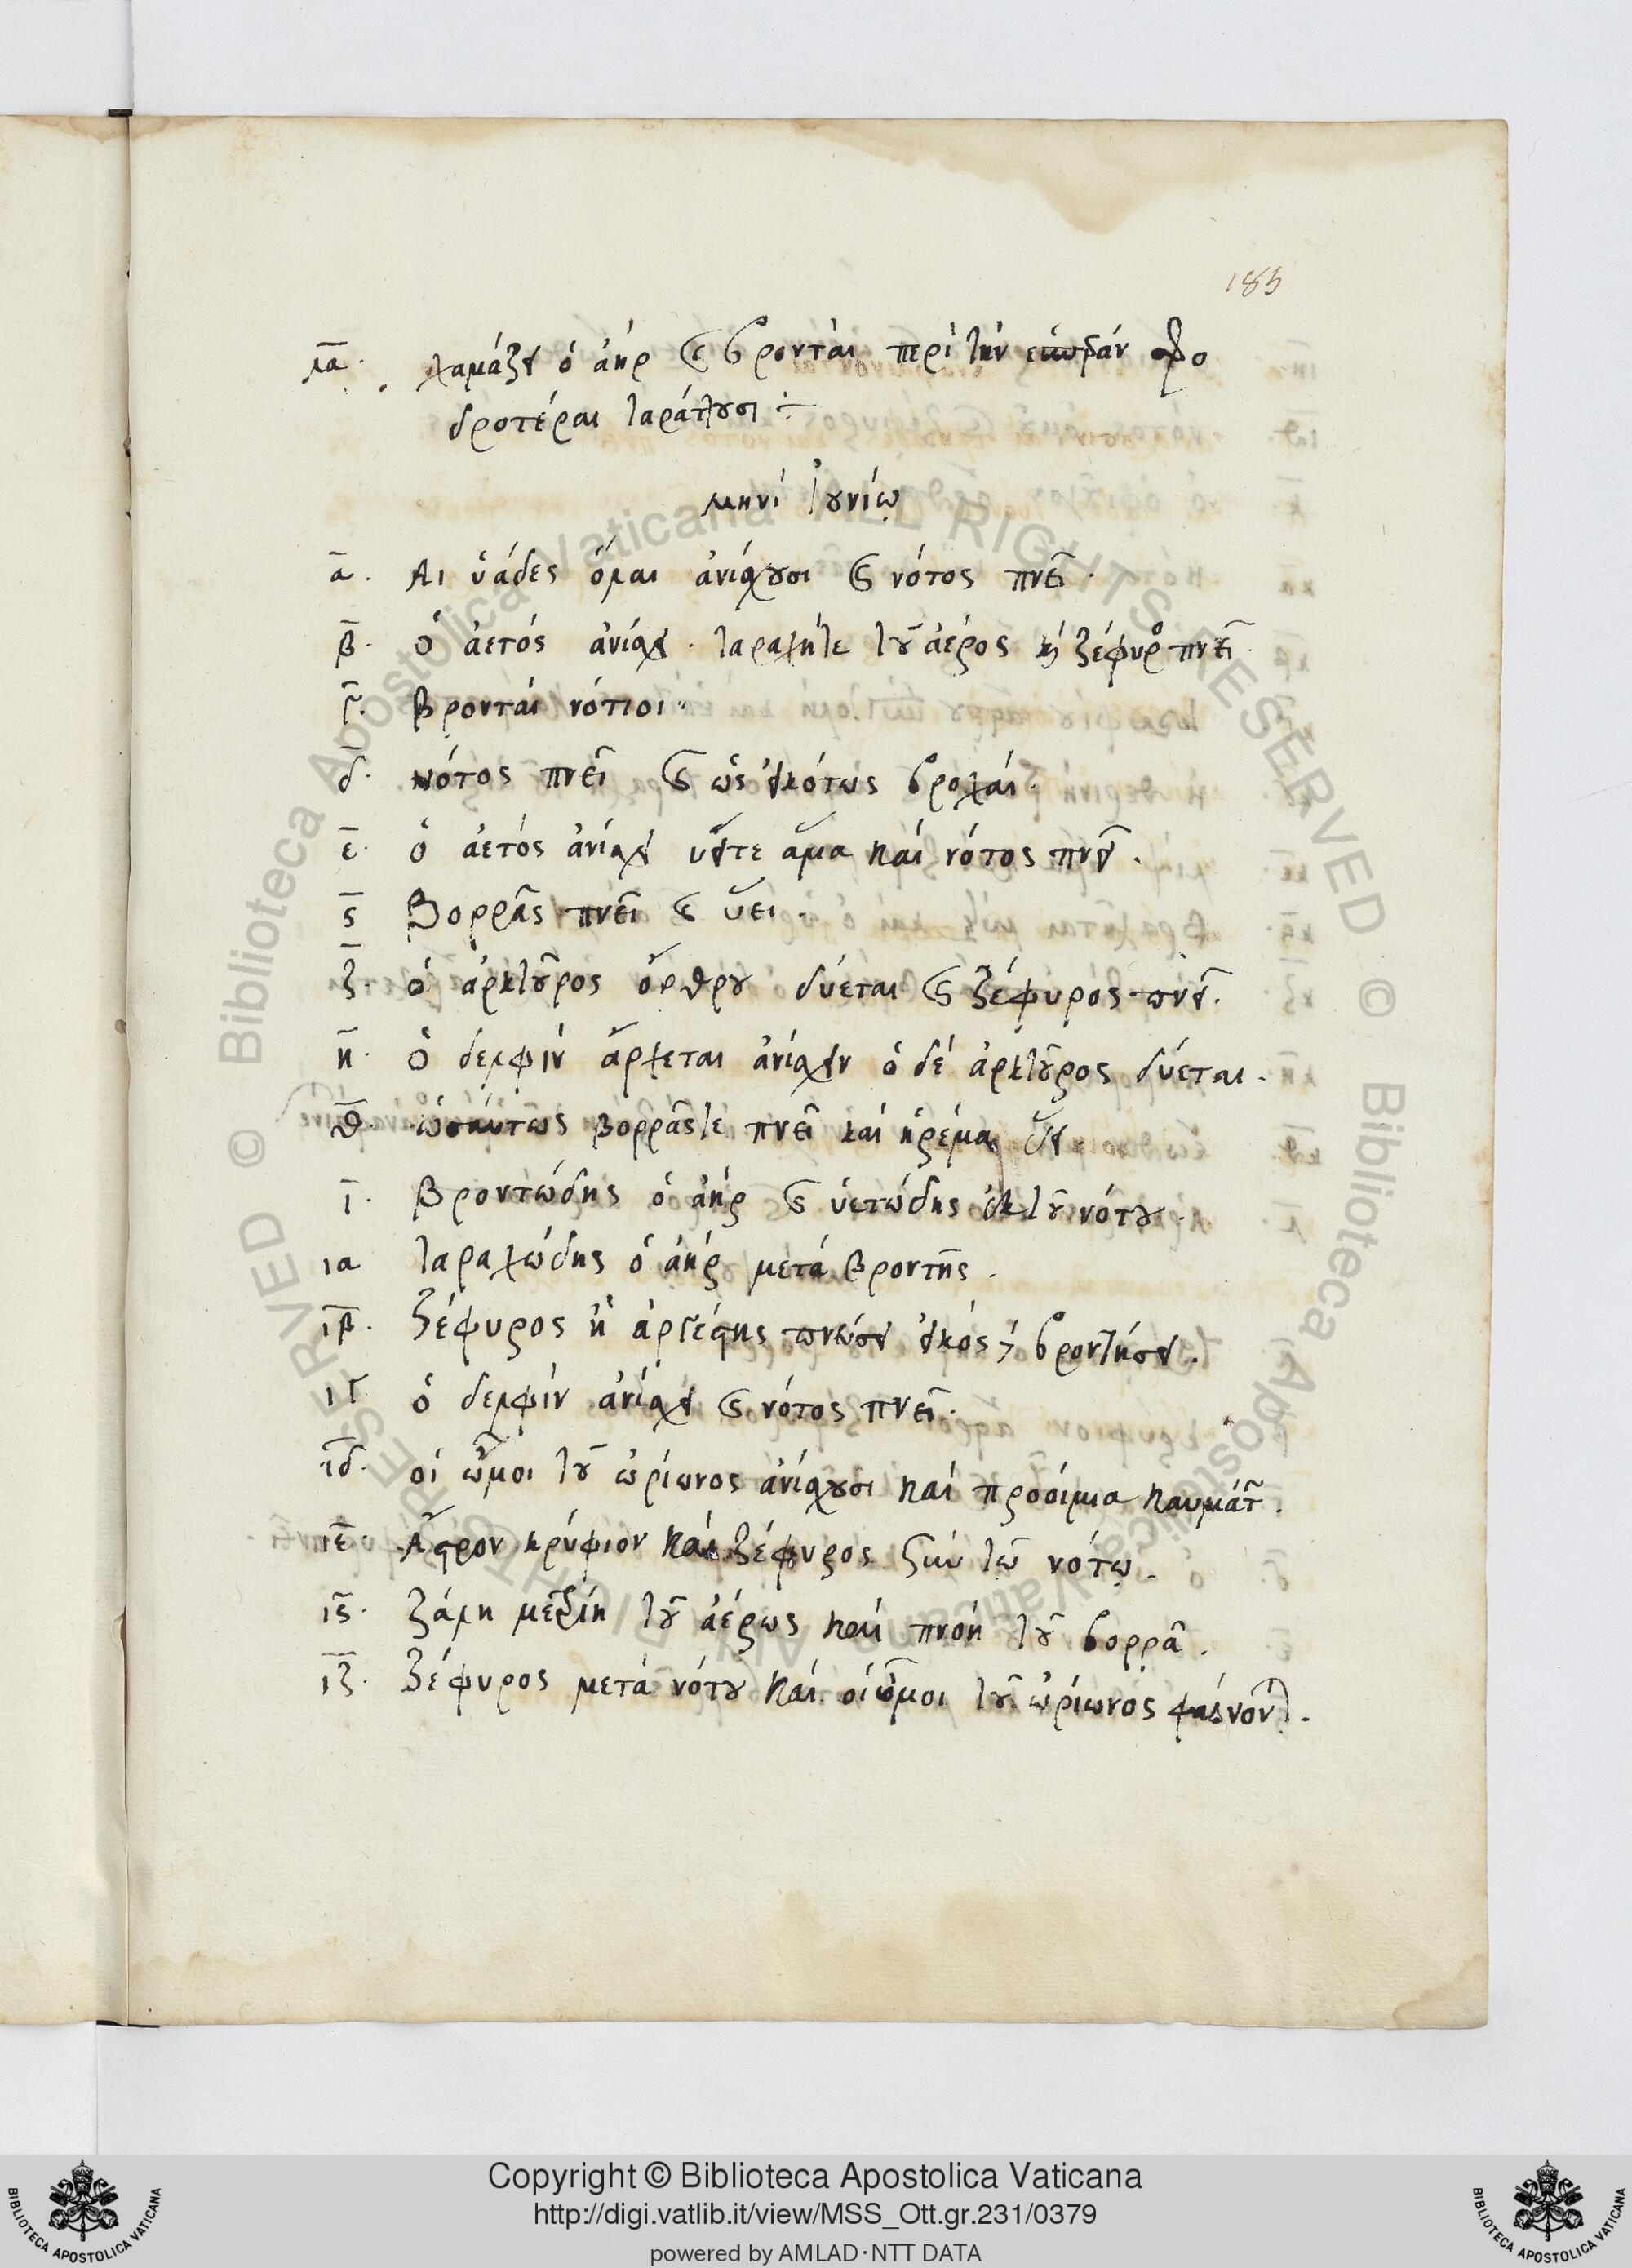 185
λα. χαλάζει ὁ ἀήρ καὶ βρονταὶ περὶ τὴν σφο
δρότεραι ταράττουσι ÷
μηνί Ἰουνίω
α. Αι ὑάδες ὅλαι ἀνίσχουσι καὶ νότος πνεῖ.
β. ὁ ἀετός ἀνίσχει. ταραχήτε τοῦ ἀέρος καὶ ζέφυρος πνεῖ.
γ. Βρονταί νότιοι.
δ. νότος πνεῖ καὶ ὡς εἰκότως βροχαί.
ε. ὁ ἀετός ἀνίσχει ὕειτε ἅμα καί νότος πνεῖ.
ς. Βορρᾶς πνεῖ καὶ ὕει.
ζ. ὁ ἀρκτοῦρος ὄρθρου δύεται καὶ ζέφυρος πνεῖ.
η. ὁ δελφίν ἄρχεται ἀνίσχειν ὁ δέ ἀρκτοῦρος δύεται.
θ. ὡσαύτως βορρᾶςτε πνεῖ καί ἠρέμα ὕει
ι. Βροντώδης ὁ ἀήρ καὶ ὑετώδης ἐκ τοῦ νότου.
ια ταραχώδης ὁ ἀήρ μετά βροντῆς.
ιβ. ζέφυρος ἢ ἀργέστης πνεύσει εἰκός βροντήσει.
ιγ ὁ δελφίν ἀνίσχει καὶ νότος πνεῖ.
ιδ. οἱ ὦμοι τοῦ ὠρίωνος ἀνίσχουσι καί προοίμια καυμάτ.
ιε. Ἄστρον κρύφιον καί ζέφυρος σύν τῶ νότω.
ις. ζάλη μετρίη τοῦ ἀέρως καί πνοή τοῦ βορρᾶ.
ιζ. ζέφυρος μετά νότου καί οἱ ὦμοι τοῦ ὠρίωνος φαίνοντ.
© Biblioteca Apostolica Vaticana ALL RIGHTS RESERVED
Copyright © Biblioteca Apostolica Vaticana
http://digi.vatlib.it/view/MSS_Ott.gr.231/0379
powered by AMLAD·NTT DATA
BIBLIOTECA APOSTOLICA VATICANA
BIBLIOTECA APOSTOLICA VATICANA